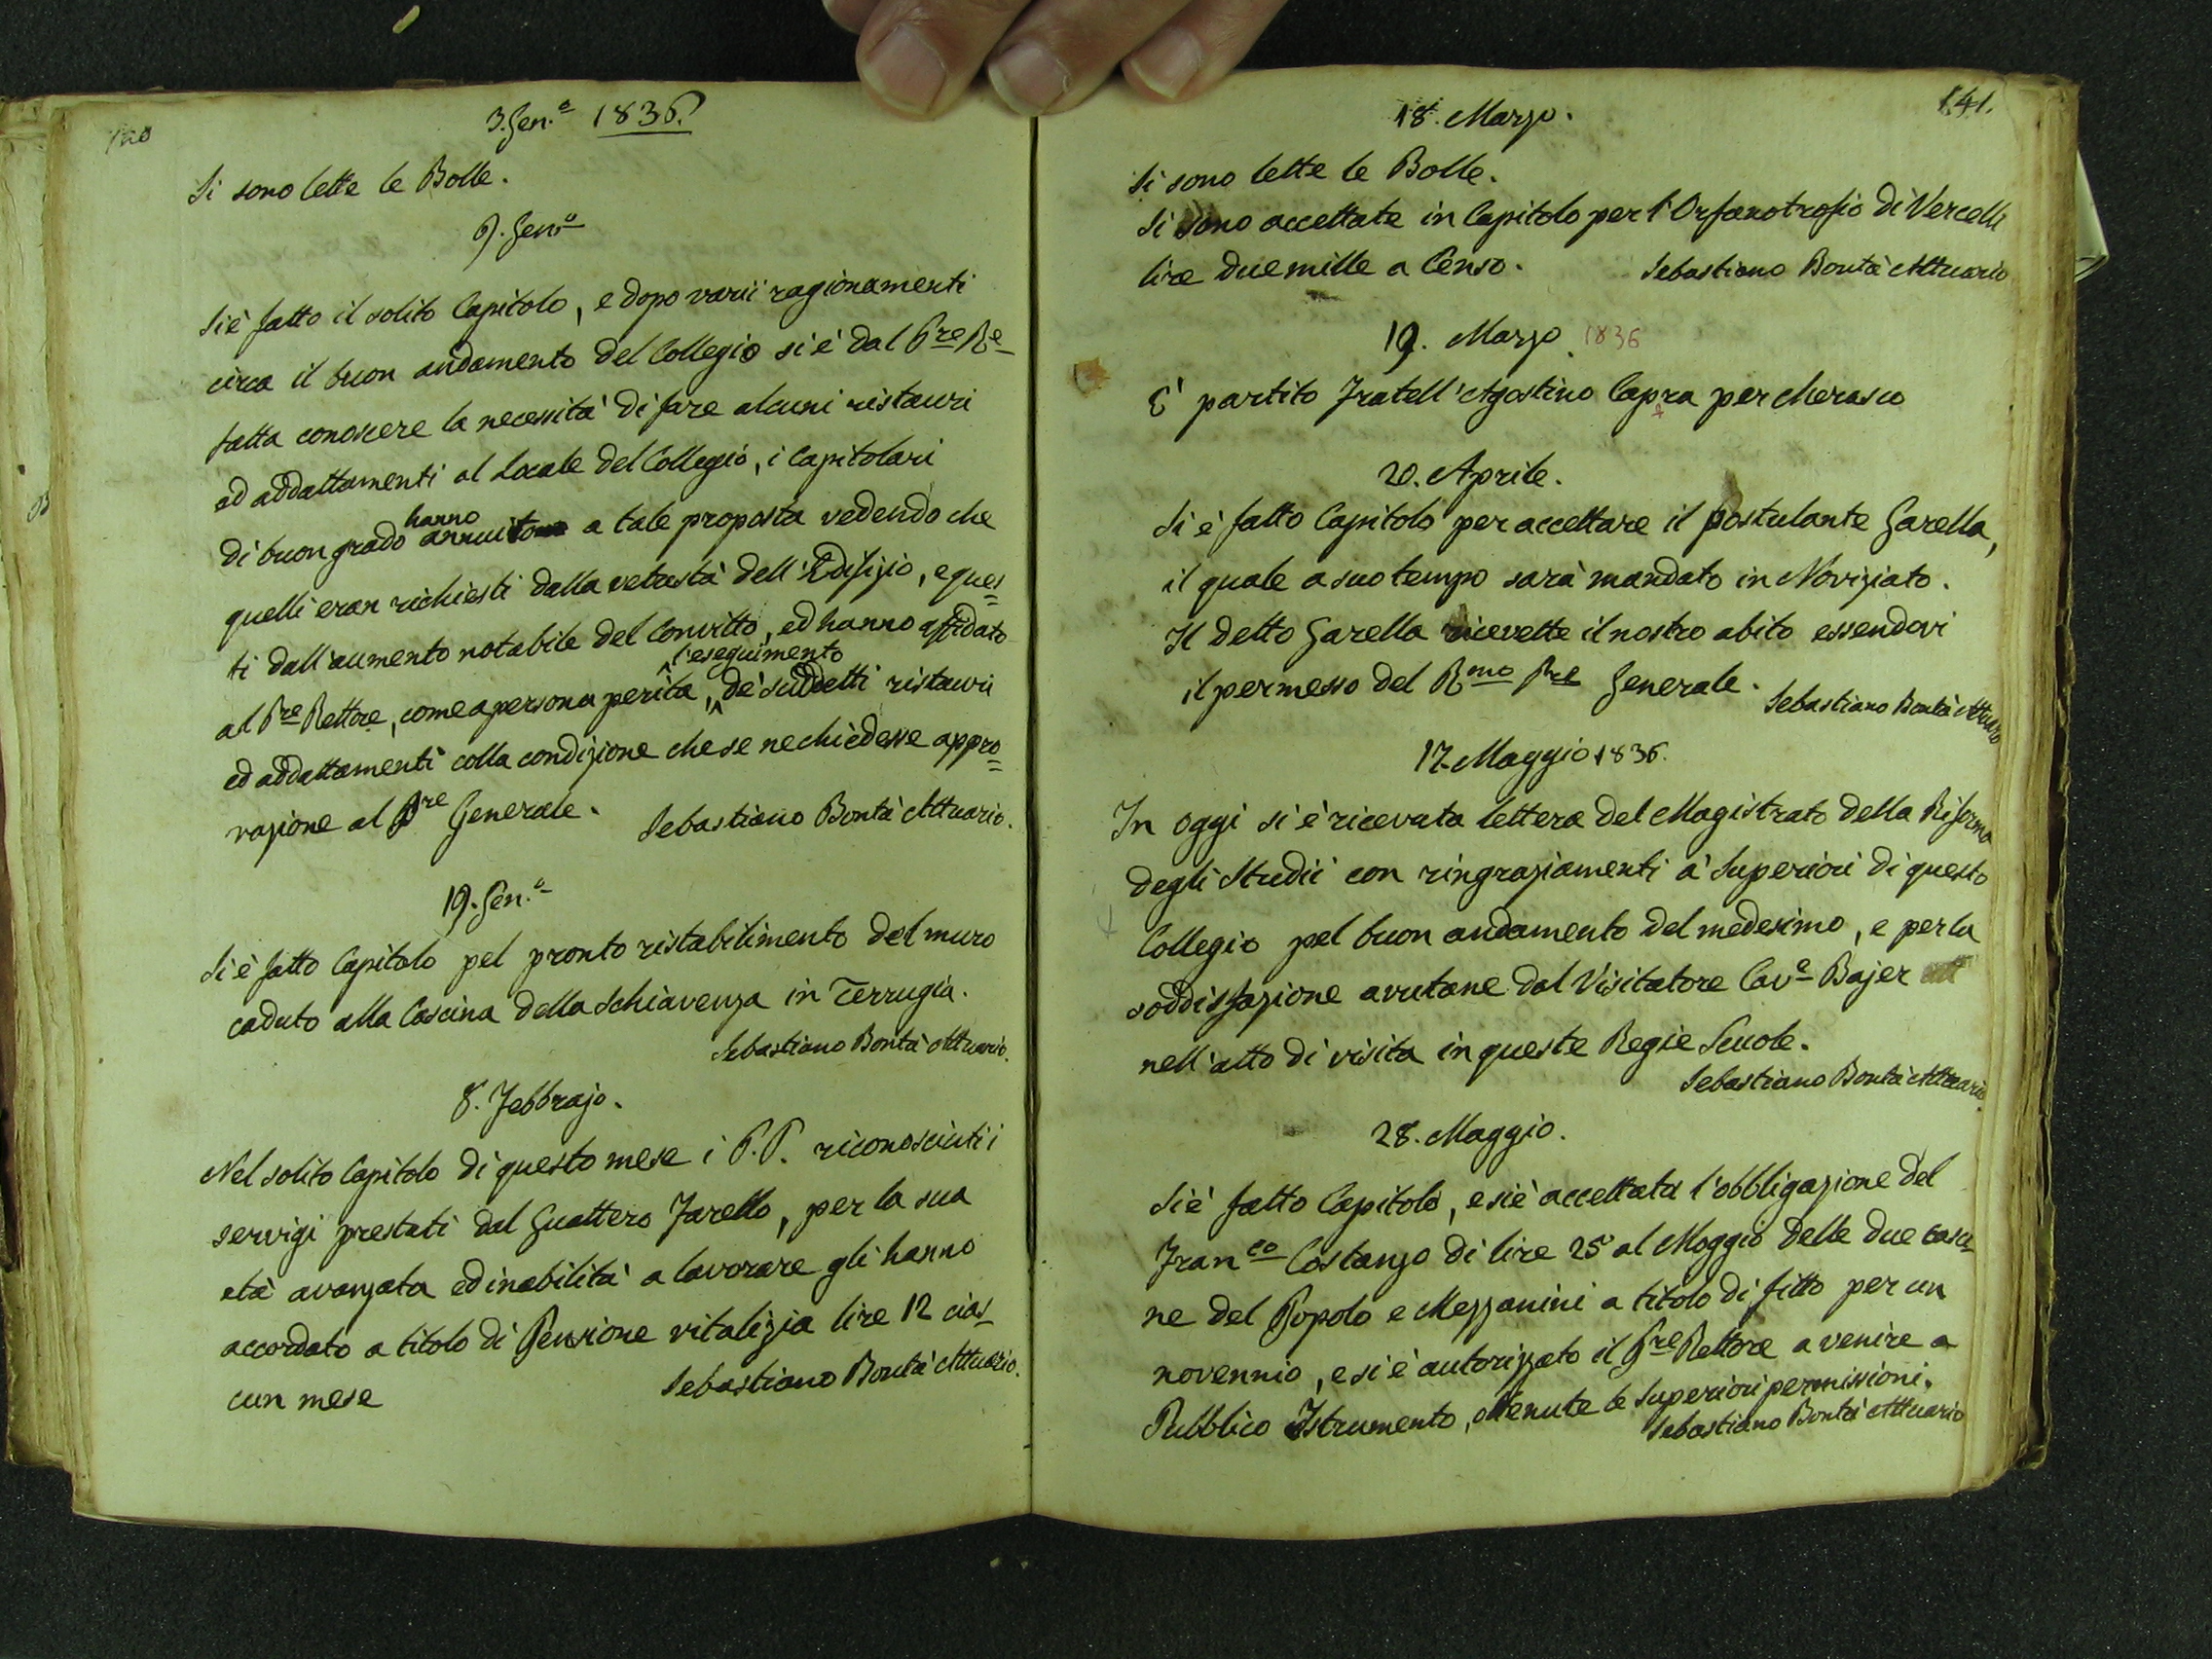 140
3. Gen.o 1836.
Si sono lette le Bolle.
9. Gen.o
Si è fatto il solito Capitolo, e dopo varii ragionamenti
circa il buon andamento del Collegio si è dal Pre Re
fatta conoscere la necessità di fare alcuni ristauri
ed addattamenti al Locale del Collegio, i Capitolari
di buon grado hanno annuito a tale proposta vedendo che
quelli eran richiesti dalla vetustà dell'Edifizio, e ques=
ti dall'aumento notabile del Convitto, ed hanno affidato
al Pre Rettore, come a persona perita, l'eseguimento de' suddetti ristauri
ed addattamenti colla condizione che se ne chiedesse appro=
vazione al Pre Generale. Sebastiano Bontà Attuario.
19. Gen.o
Si è fatto Capitolo pel pronto ristabilimento del muro
caduto alla Cascina della Schiavenza in Terrugia.
Sebastiano Bontà Attuario.
8. Febbrajo.
Nel solito Capitolo di questo mese i P.P. riconosciuti i
servigi prestati dal Guattero Farello, per la sua
età avanzata ed inabilità a lavorare gli hanno
accordato a titolo di Pensione vitalizia lire 12 cias-
cun mese Sebastiano Bontà Attuario.
141.
18. Marzo.
Si sono lette le Bolle.
Si sono accettate in Capitolo per l'Orfanotrofio di Vercelli
lire due mille a Censo. Sebastiano Bontà Attuario
19. Marzo. 1836
E' partito Fratell'Agostino Capra per Cherasco
20. Aprile.
Si è fatto Capitolo per accettare il postulante Garella,
il quale a suo tempo sarà mandato in Noviziato.
Il detto Garella ricevette il nostro abito essendovi
il permesso del Rmo Pre Generale. Sebastiano Bontà Attuario
17. Maggio 1836.
In oggi si è ricevuta lettera del Magistrato della Riforma
degli Studii con ringraziamenti a' Superiori di questo
Collegio pel buon andamento del medesimo, e per la
soddisfazione avutane dal Visitatore Cav.e Bajer
nell'atto di visita in queste Regie Scuole.
Sebastiano Bontà Attuario.
28. Maggio.
Si è fatto Capitolo, e si è accettata l'obbligazione del
Franco Costanzo di lire 25 al Moggio delle due casci-
ne del Popolo e Mezzanini a titolo di fitto per un
novennio, e si è autorizzato il Pre Rettore a venire a
Pubblico Istrumento, ottenute le Superiori permissioni.
Sebastiano Bontà Attuario